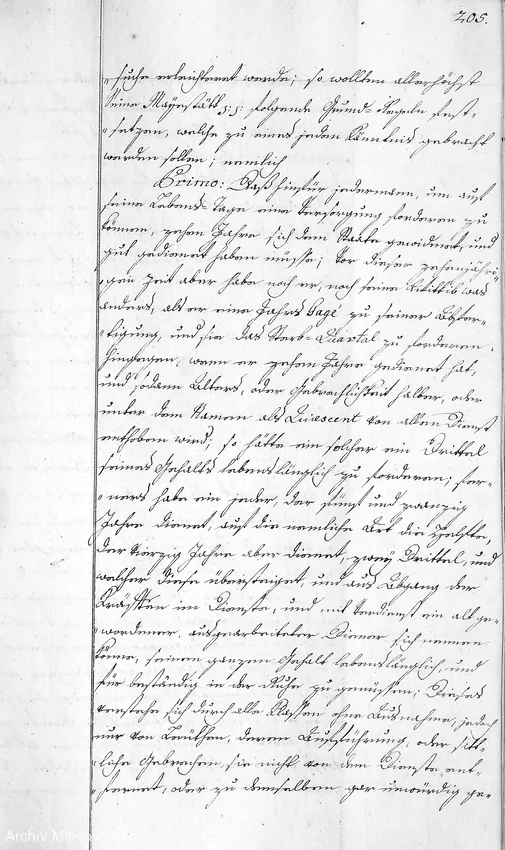 205.
„suche erleichteret werde; so wollten allerhöchst
Seine Mayestätt folgende Grund-Regeln fest-
„setzen, welche zu eines jeden Känntnis gebracht
werden sollen; nemlich
Primo: Daß hinfür jedermann, um auf
seine Lebens-Tage eine Versorgung forderen zu
können, zehen Jahre sich dem Staate gewidmet, und
gut gedienet haben müsse; Vor dieser zehenjähri-
„gen Zeit aber habe noch er, noch seine Wittib was
anders, als er eine Jahrs Gage zu seiner Abfer-
„tigung, und sie das Sterb-Quartal zu forderen.
hingegen, wenn er zehen Jahre gedienet hat,
und sodann Alters, oder Gebrechlichkeit halber, oder
unter dem Namen als Quiescent von allen Dienst
enthoben wird; so hätte ein solcher ein Drittel
seines Gehalts lebenslänglich zu forderen; fer-
„ners habe ein jeder, der fünf und zwanzig
Jahre dienet, auf die nemliche Art die Helfte,
der vierzig Jahre aber dienet, zwey Drittel, und
welcher diese übersteiget, und aus Abgang der
Kräfften im Dienste, und mit Verdienst ein alt ge-
„wordener, ausgearbeiteter Diener sich nennen
könne, seinen ganzen Gehalt lebenslänglich und
für beständig in der Ruhe zu genüssen; Dieses
verstehe sich durch alle Klassen ohne Ausnahme, jedoch
nur von Leuthen, deren Aufführung, oder sitt-
„liche Gebrechen, sie nicht von dem Dienste ent-
„fernet, oder zu demselben gar unwürdig ge-
Archiv